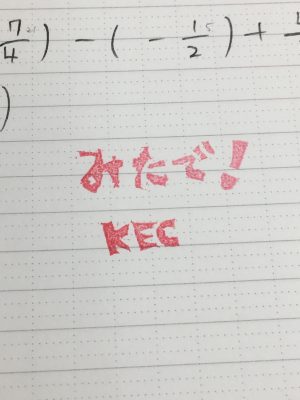 7/4) - ( - 1/2 ) +
)
みたで!
KEC